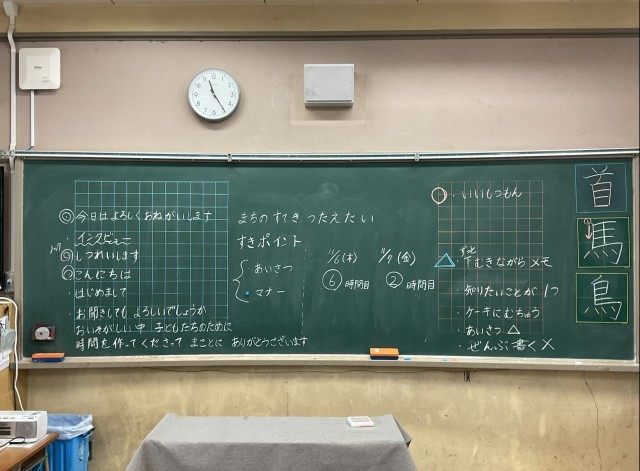 ◎今日はよろしくおねがいします
・インタビュー
◎しつれいします
◎こんにちは
・はじめまして
・お聞きしても よろしいでしょうか
おいそがしい中 子どもたちのために
時間を作ってくださって まことに ありがとうございます
まちのすてき つたえたい
すきポイント
あいさつ
・マナー
11/6(木)
⑥時間目
11/7(金)
②時間目
・いいしつもん
ずっと
△・下むきながら メモ
・知りたいことが 1つ
・ケーキにむちゅう
・あいさつ △
・ぜんぶ書く ×
首
馬
鳥